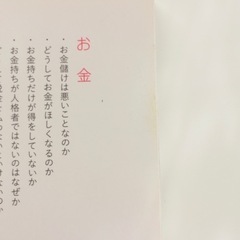 お金
・お金儲けは悪いことなのか
・どうしてお金がほしくなるのか
・お金持ちだけが得をしていないか
・お金持ちが人格者ではないのはなぜか